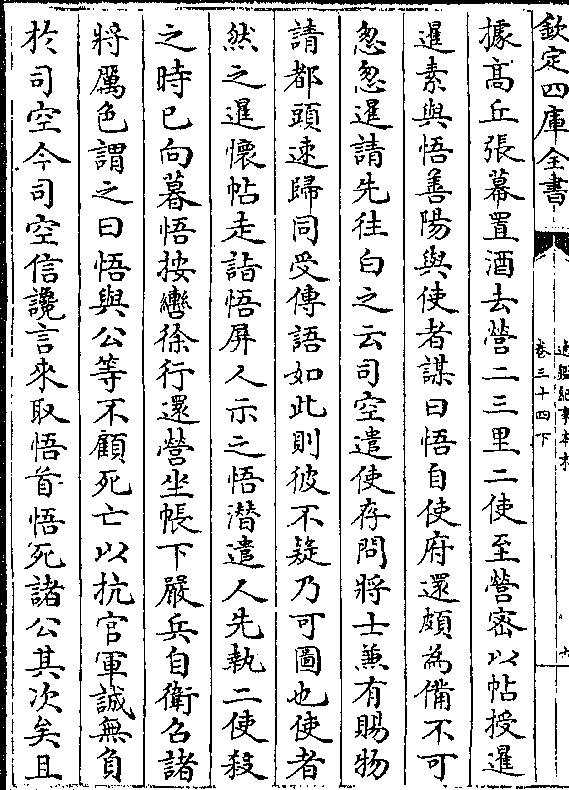 欽定四庫全書
通鑑紀事本末
卷三十四下
據高丘張幕置酒去營二三里二使至營密以帖授暹
暹素與悟善陽與使者謀曰悟自使府還頗為備不可
怱怱暹請先往白之云司空遣使存問將士兼有賜物
請都頭速歸同受傳語如此則彼不疑乃可圖也使者
然之暹懷帖走詣悟屏人示之悟潛遣人先執二使殺
之時已向暮悟按轡徐行還營坐帳下嚴兵自衛召諸
將厲色謂之曰悟與公等不顧死亡以抗官軍誠無負
於司空今司空信讒言來取悟首悟死諸公其次矣且